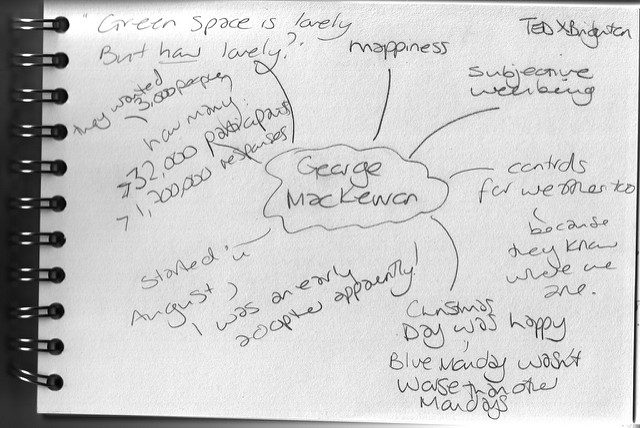 "Green space is lovely
But how lovely?"
TEDxBrighton
mappiness
subjective
wellbeing
they wanted
3,000 people
how many
32,000 participants
1,200,000 responses
George
MacKewan
controls
for weather too
because
they know
where we
are.
started in
August
I was an early
adopter apparently!
Christmas
Day was happy
Blue Monday wasn't
worse than other
Mondays